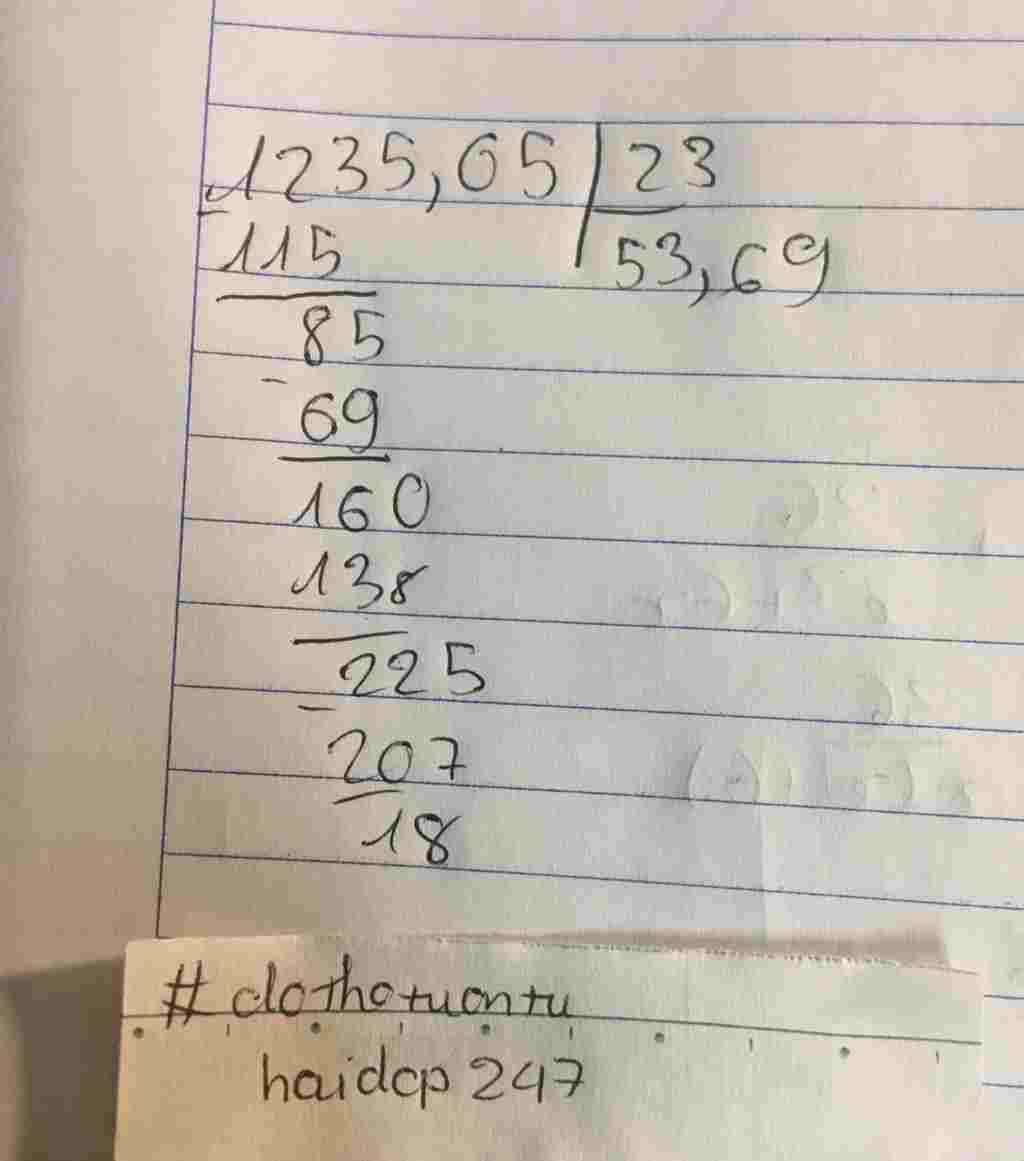 1235,65 23
115 53,69
85
- 69
160
138
225
- 207
18
# clothotuontu
haidcp 247